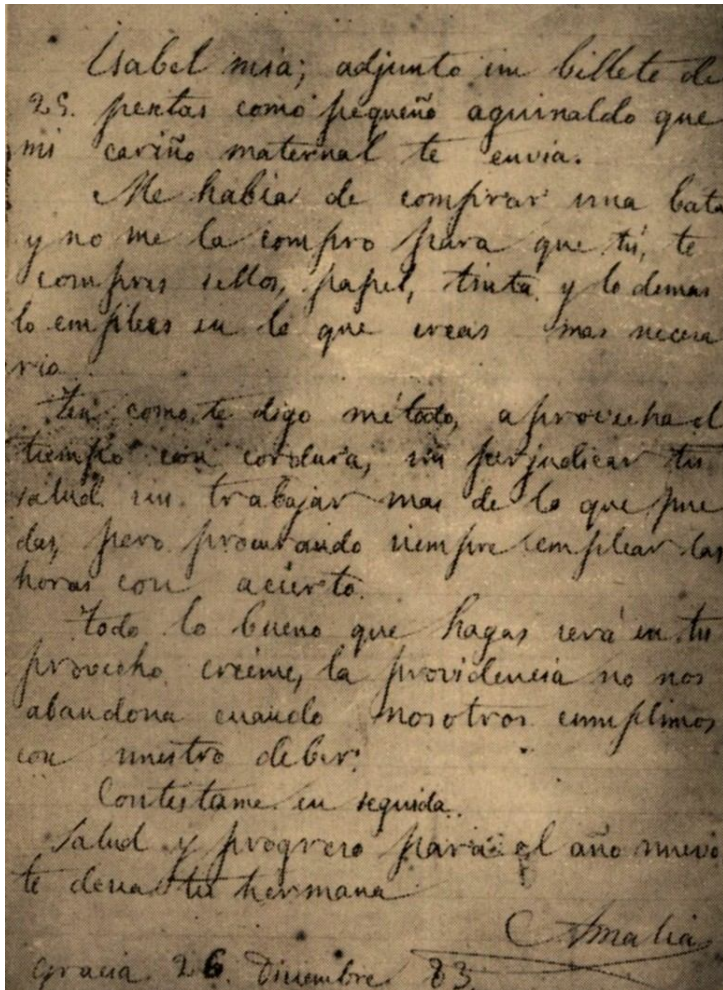 Isabel mia; adjunto un billete de
25. pesetas como pequeño aguinaldo que
mi cariño maternal te envia.
Me habia de comprar una bata
y no me la compro para que tú, te
compres sellos, papel, tinta y lo demas
lo emplees en lo que creas mas necesa
rio.
Ten, como te digo método, aprovecha el
tiempo con cordura, sin perjudicar tu
salud sin trabajar mas de lo que pue
das, pero procurando siempre emplear las
horas con acierto.
Todo lo bueno que hagas será en tu
provecho, creeme, la providencia no nos
abandona cuando nosotros cumplimos
con nuestro deber.
Contestame en seguida.
Salud y progreso para el año nuevo
te desea tu hermana
Amalia
Gracia 26. Diciembre 83.